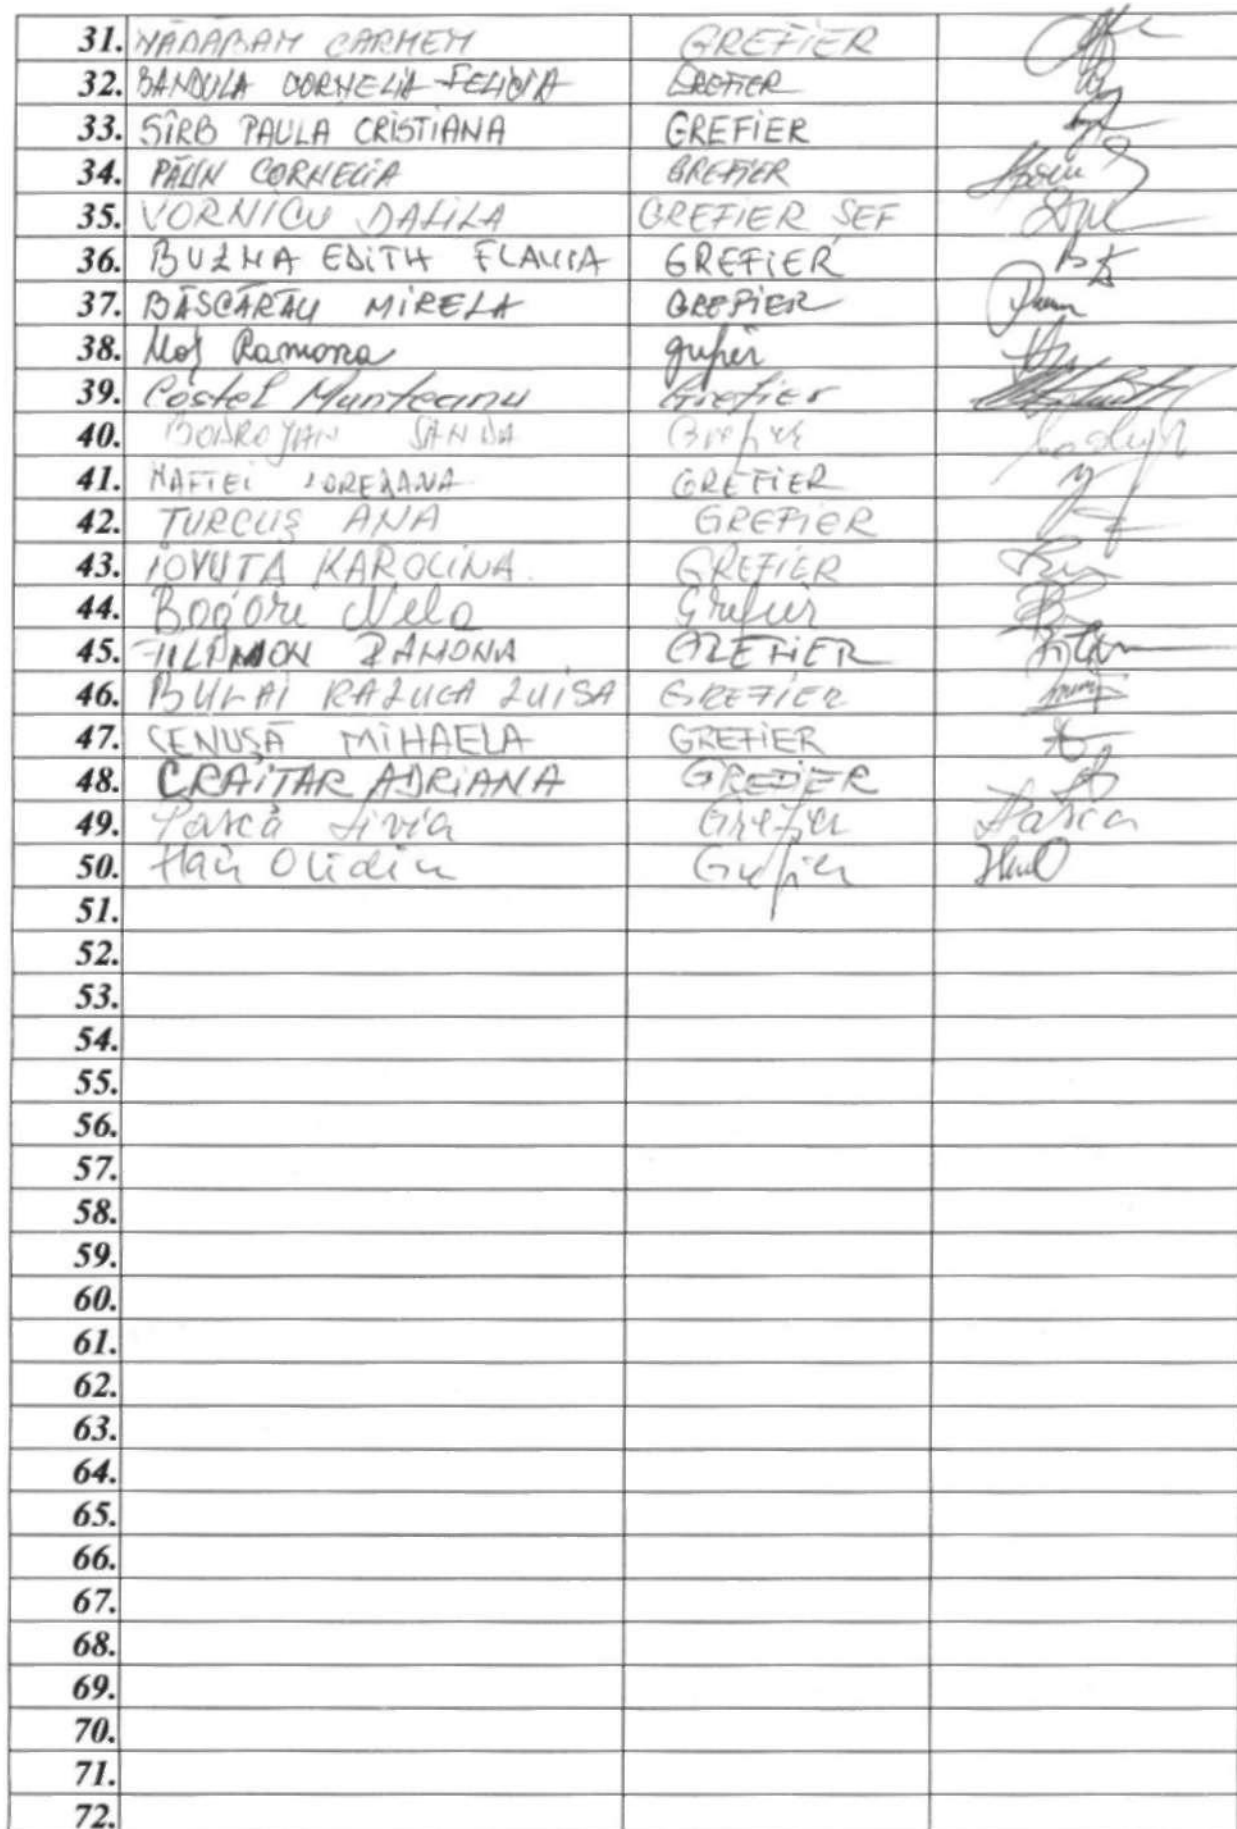 31. NĂDĂBAN CARMEN GREFIER
32. BANDULA CORNELIA-FELICIA GREFIER
33. SÎRB PAULA CRISTIANA GREFIER
34. PĂUN CORNELIA GREFIER
35. VORNICU DALILA GREFIER SEF
36. EDITH FLAVIA GREFIER
37. BĂSCĂRĂU MIRELA GREFIER
38. Moț Ramona grefier
39. Costel Munteanu Grefier
40. SANDA Grefier
41. NAFTEI LOREDANA GREFIER
42. TURCUȘ ANA GREFIER
43. IOVUTA KAROLINA GREFIER
44. Nela Grefier
45. FILIMON RAMONA GREFIER
46. BULAI RALUCA LUISA GREFIER
47. CENUȘĂ MIHAELA GREFIER
48. CRĂITAR ADRIANA GREFIER
49. Pașcă Livia Grefier Pașca
50. Grefier
51.
52.
53.
54.
55.
56.
57.
58.
59.
60.
61.
62.
63.
64.
65.
66.
67.
68.
69.
70.
71.
72.